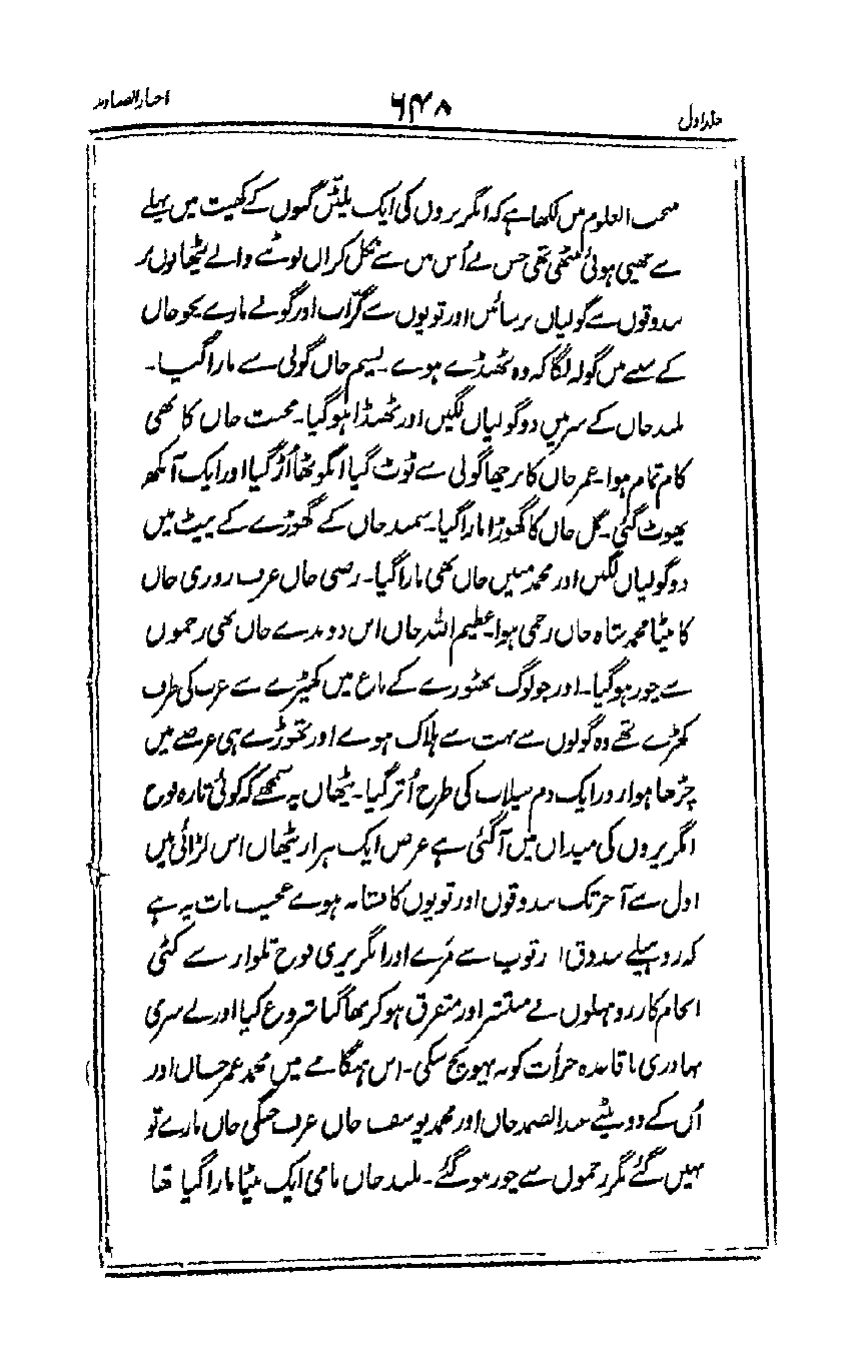 جلد اول ۶۴۸ اخبار الصنادید
منتخب العلوم میں لکھا ہے کہ انگریزوں کی ایک پلٹن گیہوں کے کھیت میں پہلے
سے چھپی ہوئی بیٹھی تھی جس نے اُس میں سے نکل کر ان لوٹنے والے پٹھانوں پر
بندوقوں سے گولیاں برسائیں اور توپوں سے گراب اور گولے مارے نجو خاں
کے سینے میں گولہ لگا کہ وہ ٹھنڈے ہوے۔ نسیم خاں گولی سے مارا گیا۔
بلند خاں کے سر میں دو گولیاں لگیں اور ٹھنڈا ہو گیا۔ محبت خاں کا بھی
کام تمام ہوا۔ عمر خاں کا برچھا گولی سے ٹوٹ گیا انگوٹھا اُڑ گیا اور ایک آنکھ
پھوٹ گئی۔ گل خاں کا گھوڑا مارا گیا۔ سمند خاں کے گھوڑے کے پیٹ میں
دو گولیاں لگیں اور محمد مبین خاں بھی مارا گیا۔ رضی خاں عرف روزی خاں
کا بیٹا محمد شاہ خاں زخمی ہوا۔ عظیم اللہ خاں ابن دوندے خاں بھی زخموں
سے چور ہو گیا۔ اور جو لوگ بھٹورے کے باغ میں کھیڑے سے غرب کی طرف
کھڑے تھے وہ گولوں سے بہت سے ہلاک ہوے اور تھوڑے ہی عرصے میں
چڑھا ہوا زور ایک دم سیلاب کی طرح اُتر گیا۔ پٹھان یہ سمجھے کہ کوئی تازہ فوج
انگریزوں کی میدان میں آ گئی ہے غرض ایک ہزار پٹھان اس لڑائی میں
اول سے آخر تک بندوقوں اور توپوں کا نشانہ ہوے عجیب بات یہ ہے
کہ روہیلے بندوق اور توپ سے مَرے اور انگریزی فوج تلوار سے کٹی
انجام کار روہیلوں نے منتشر اور متفرق ہو کر بھاگنا شروع کیا اور بے سری
بہادری باقاعدہ جرأت کو نہ پہونچ سکی۔ اس ہنگامے میں محمد عمر خاں اور
اُن کے دو بیٹے عبد الصمد خاں اور محمد یوسف خاں عرف جنگی خاں مارے تو
نہیں گئے مگر زخموں سے چور ہو گئے۔ بلند خاں نامی ایک بیٹا مارا گیا تھا